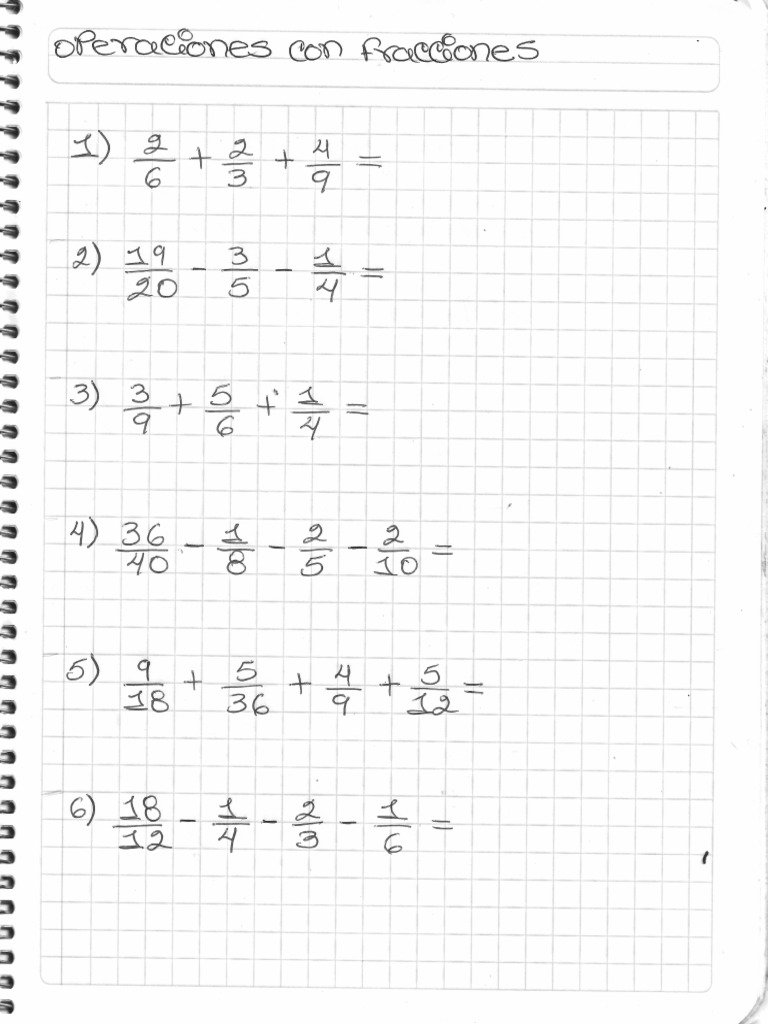 operaciones con fracciones
1) 2/6 + 2/3 + 4/9 =
2) 19/20 - 3/5 - 1/4 =
3) 3/9 + 5/6 + 1/4 =
4) 36/40 - 1/8 - 2/5 - 2/10 =
5) 9/18 + 5/36 + 4/9 + 5/12 =
6) 18/12 - 1/4 - 2/3 - 1/6 =